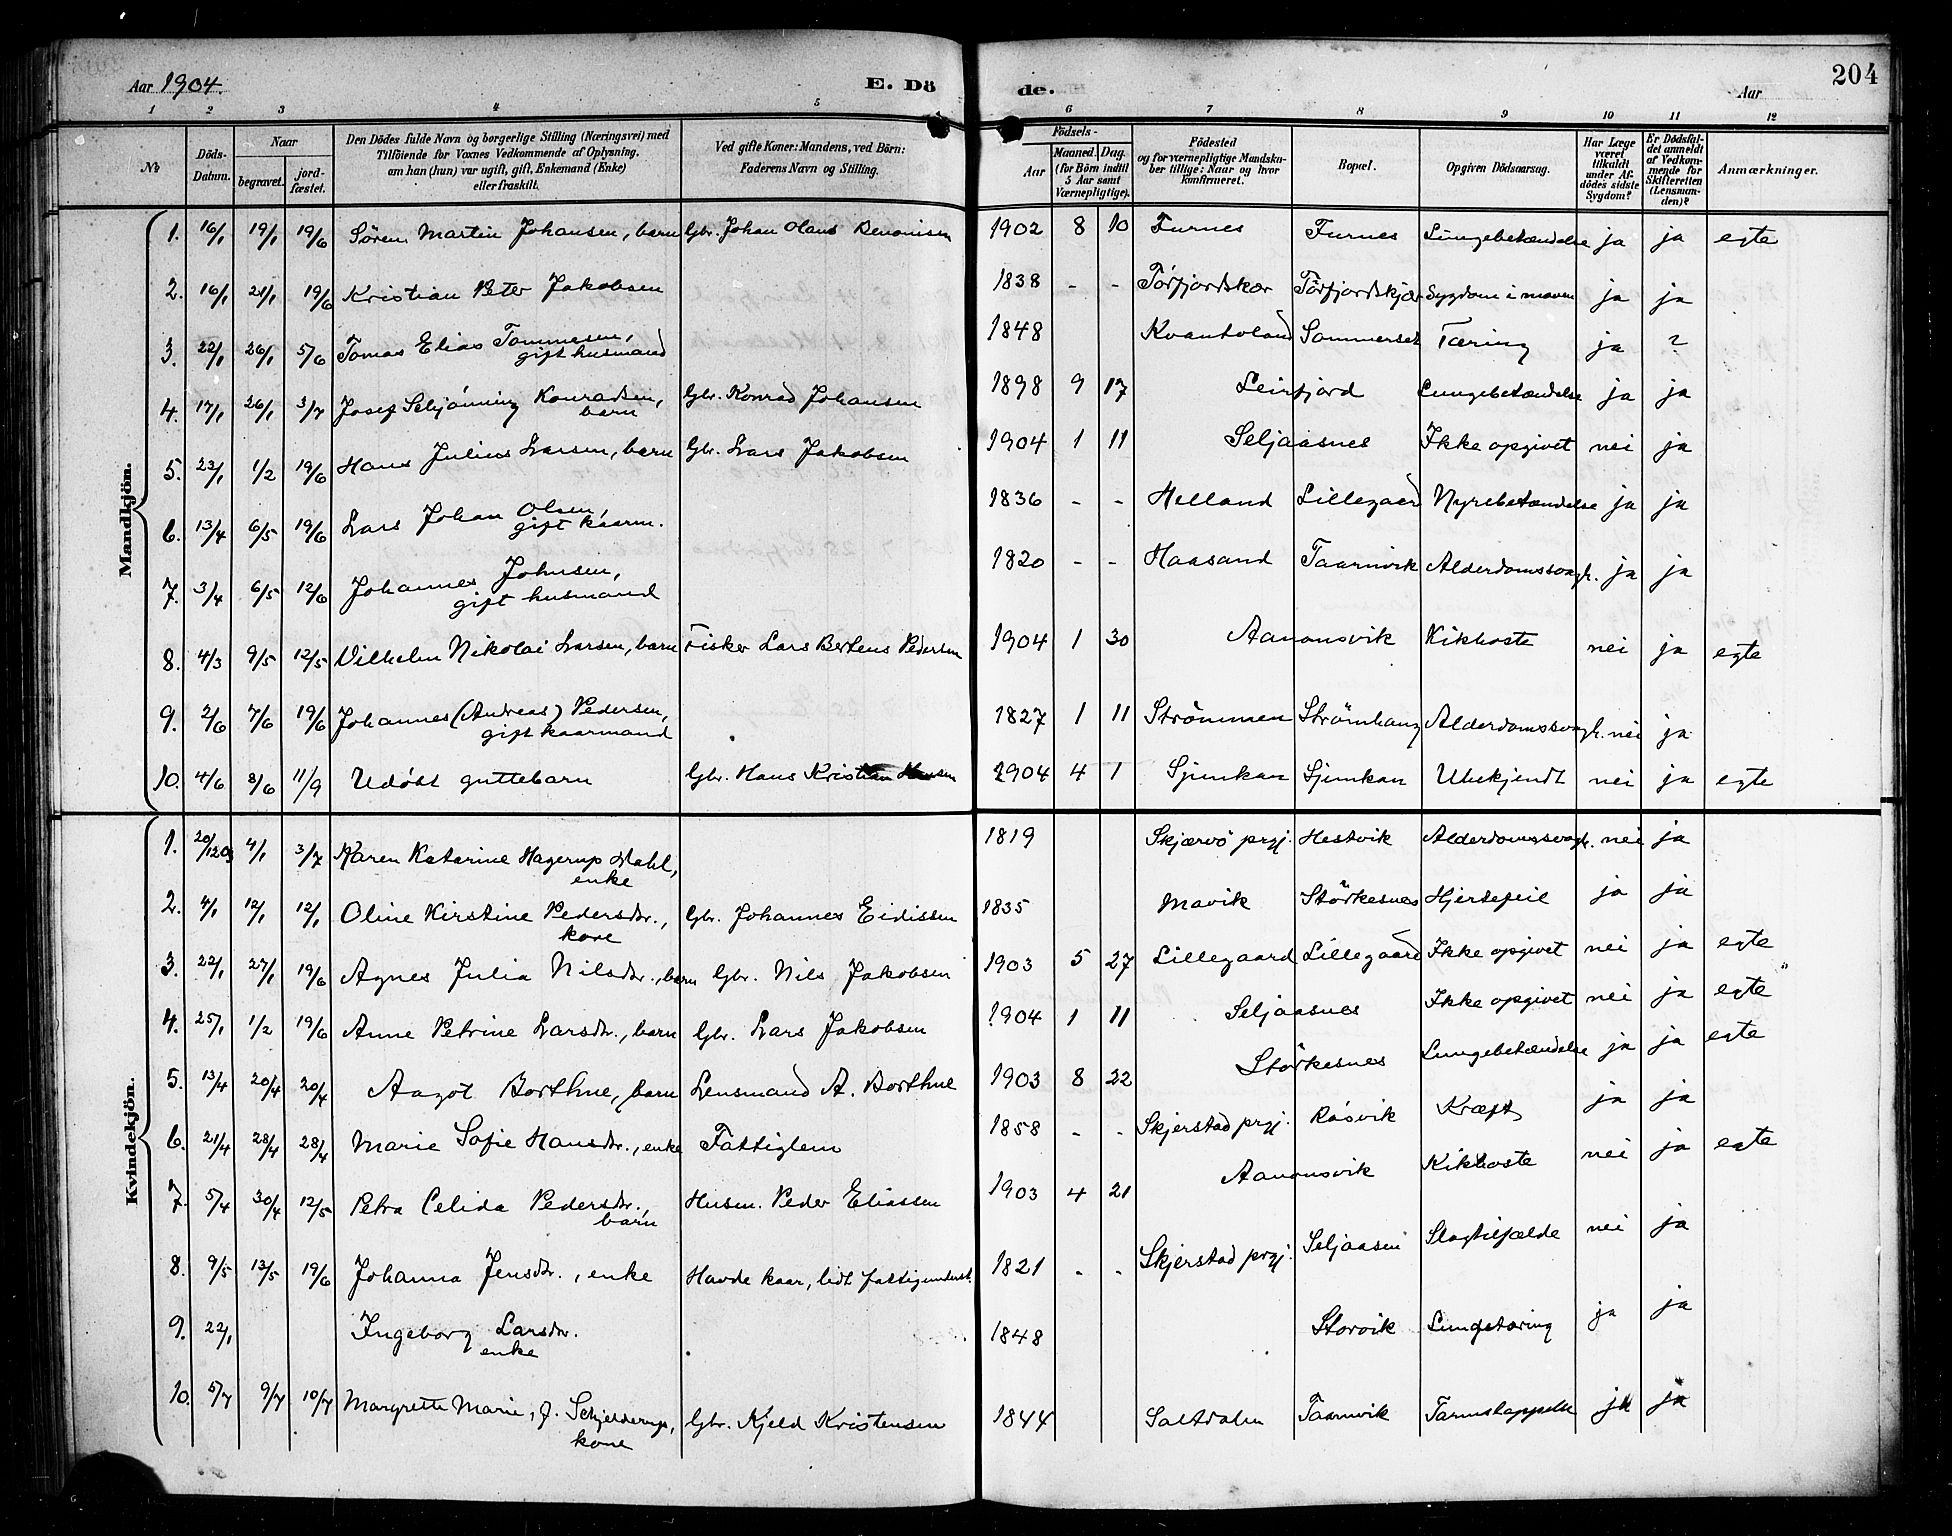 Aar 1904.
E. Döde.
Aar
204
1 2 3 4 5 6 7 8 9 10 11 12
No
Döds-Datum.
Naar
begravet.
jord-fæstet.
Den Dödes fulde Navn og borgerlige Stilling (Næringsvei) med
Tilföiende for Voxnes Vedkommende af Oplysning,
om han (hun) var ugift, gift, Enkemand (Enke)
eller fraskilt.
Ved gifte Koner: Mandens, ved Börn:
Faderens Navn og Stilling.
Födsels-
Aar
Maaned. Dag.
(for Börn indtil
5 Aar samt
Værnepligtige).
Födested
og for værnepligtige Mandska-
ber tillige: Naar og hvor
konfirmeret.
Bopæl.
Opgiven Dödsaarsag.
Har Læge
været
tilkaldt
under Af-
dödes sidste
Sygdom?
Er Dödsfal-
det anmeldt
af Vedkom-
mende for
Skifteretten
(Lensman-
den)?
Anmærkninger.
Mandkjön.
1. 16/1 19/1 19/6 Søren Martin Johansen, barn Gbr. Johan Olaus Benonisen 1902 8 10 Furnes Furnes Lungebetændelse ja ja egte
2. 16/1 21/1 19/6 Kristian Peter Jakobsen 1838 - - Tørfjordskær Tørfjordskjær Sygdom i maven ja ja
3. 22/1 26/1 5/6 Tomas Elias Tommesen,
gift husmand 1848 Kvantoland Sommerset Tæring ja ?
4. 17/1 26/1 3/7 Josef Schjønning Konradsen,
barn Gbr. Konrad Johansen 1898 9 17 Leirfjord Lungebetændelse ja ja
5. 23/1 1/2 19/6 Hans Julius Larsen, barn Gbr. Lars Jakobsen 1904 1 11 Seljaasnes Ikke opgivet nei ja
6. 13/4 6/5 19/6 Lars Johan Olsen,
gift kaarm. 1836 - - Helland Lillegaard Nyrebetændelse ja ja
7. 3/4 6/5 12/6 Johannes Johnsen,
gift husmand 1820 - - Haasand Taarnvik Alderdomssvagh. ja ja
8. 4/3 9/5 12/5 Vilhelm Nikolai Larsen, barn Fisker Lars Bertens Pedersen 1904 1 30 Aanonsvik Kikhoste nei ja egte
9. 2/6 7/6 19/6 Johannes (Andreas) Pedersen,
gift kaarmand 1827 1 11 Strømmen Strømhaug Alderdomssvagh. nei ja
10. 4/6 8/6 11/9 Udøbt guttebarn Gbr. Hans Kristian Hansen 1904 4 1 Sjunkan Sjunkan Ubekjendt nei ja egte
Kvindekjön.
1. 20/12 03 4/1 3/7 Karen Katarine Hagerup Dahl,
enke 1819 Skjærvö prgj. Hestvik Alderdomssvagh. nei ja
2. 4/1 12/1 12/1 Oline Kirstine Pedersdtr.,
kone Gbr. Johannes Eidissen 1835 Mavik Störkesnes Hjertefeil ja ja
3. 22/1 27/1 19/6 Agnes Julia Nilsdtr., barn Gbr. Nils Jakobsen 1903 5 27 Lillegaard Lillegaard Ikke opgivet nei ja egte
4. 25/1 1/2 19/6 Anne Petrine Larsdtr., barn Gbr. Lars Jakobsen 1904 1 11 Seljaasnes Ikke opgivet nei ja egte
5. 13/4 20/4 20/4 Aagot Borthne, barn Lensmand A. Borthne 1903 8 22 Störkesnes Lungebetændelse ja ja egte
6. 21/4 28/4 28/4 Marie Sofie Hansdtr., enke Fattiglem 1858 - - Skjerstad prgj. Røsvik Kræft ja ja
7. 5/4 30/4 12/5 Petra Celida Pedersdtr.,
barn Husm. Peder Eliassen 1903 4 21 Aanonsvik Kikhoste nei ja egte
8. 9/5 13/5 19/6 Johanna Jensdtr., enke Havde kaar, lidt fattigunderst. 1821 - - Skjerstad prgj. Seljaasen Slagtilfælde nei ja
9. 22/1 Ingeborg Larsdtr.
enke 1848 Storvik Lungetæring ja ja
10. 5/7 9/7 10/7 Margrette Marie, f. Schjelderup,
kone Gbr. Kjeld Kristensen 1844 Saltdalen Taarnvik ja ja